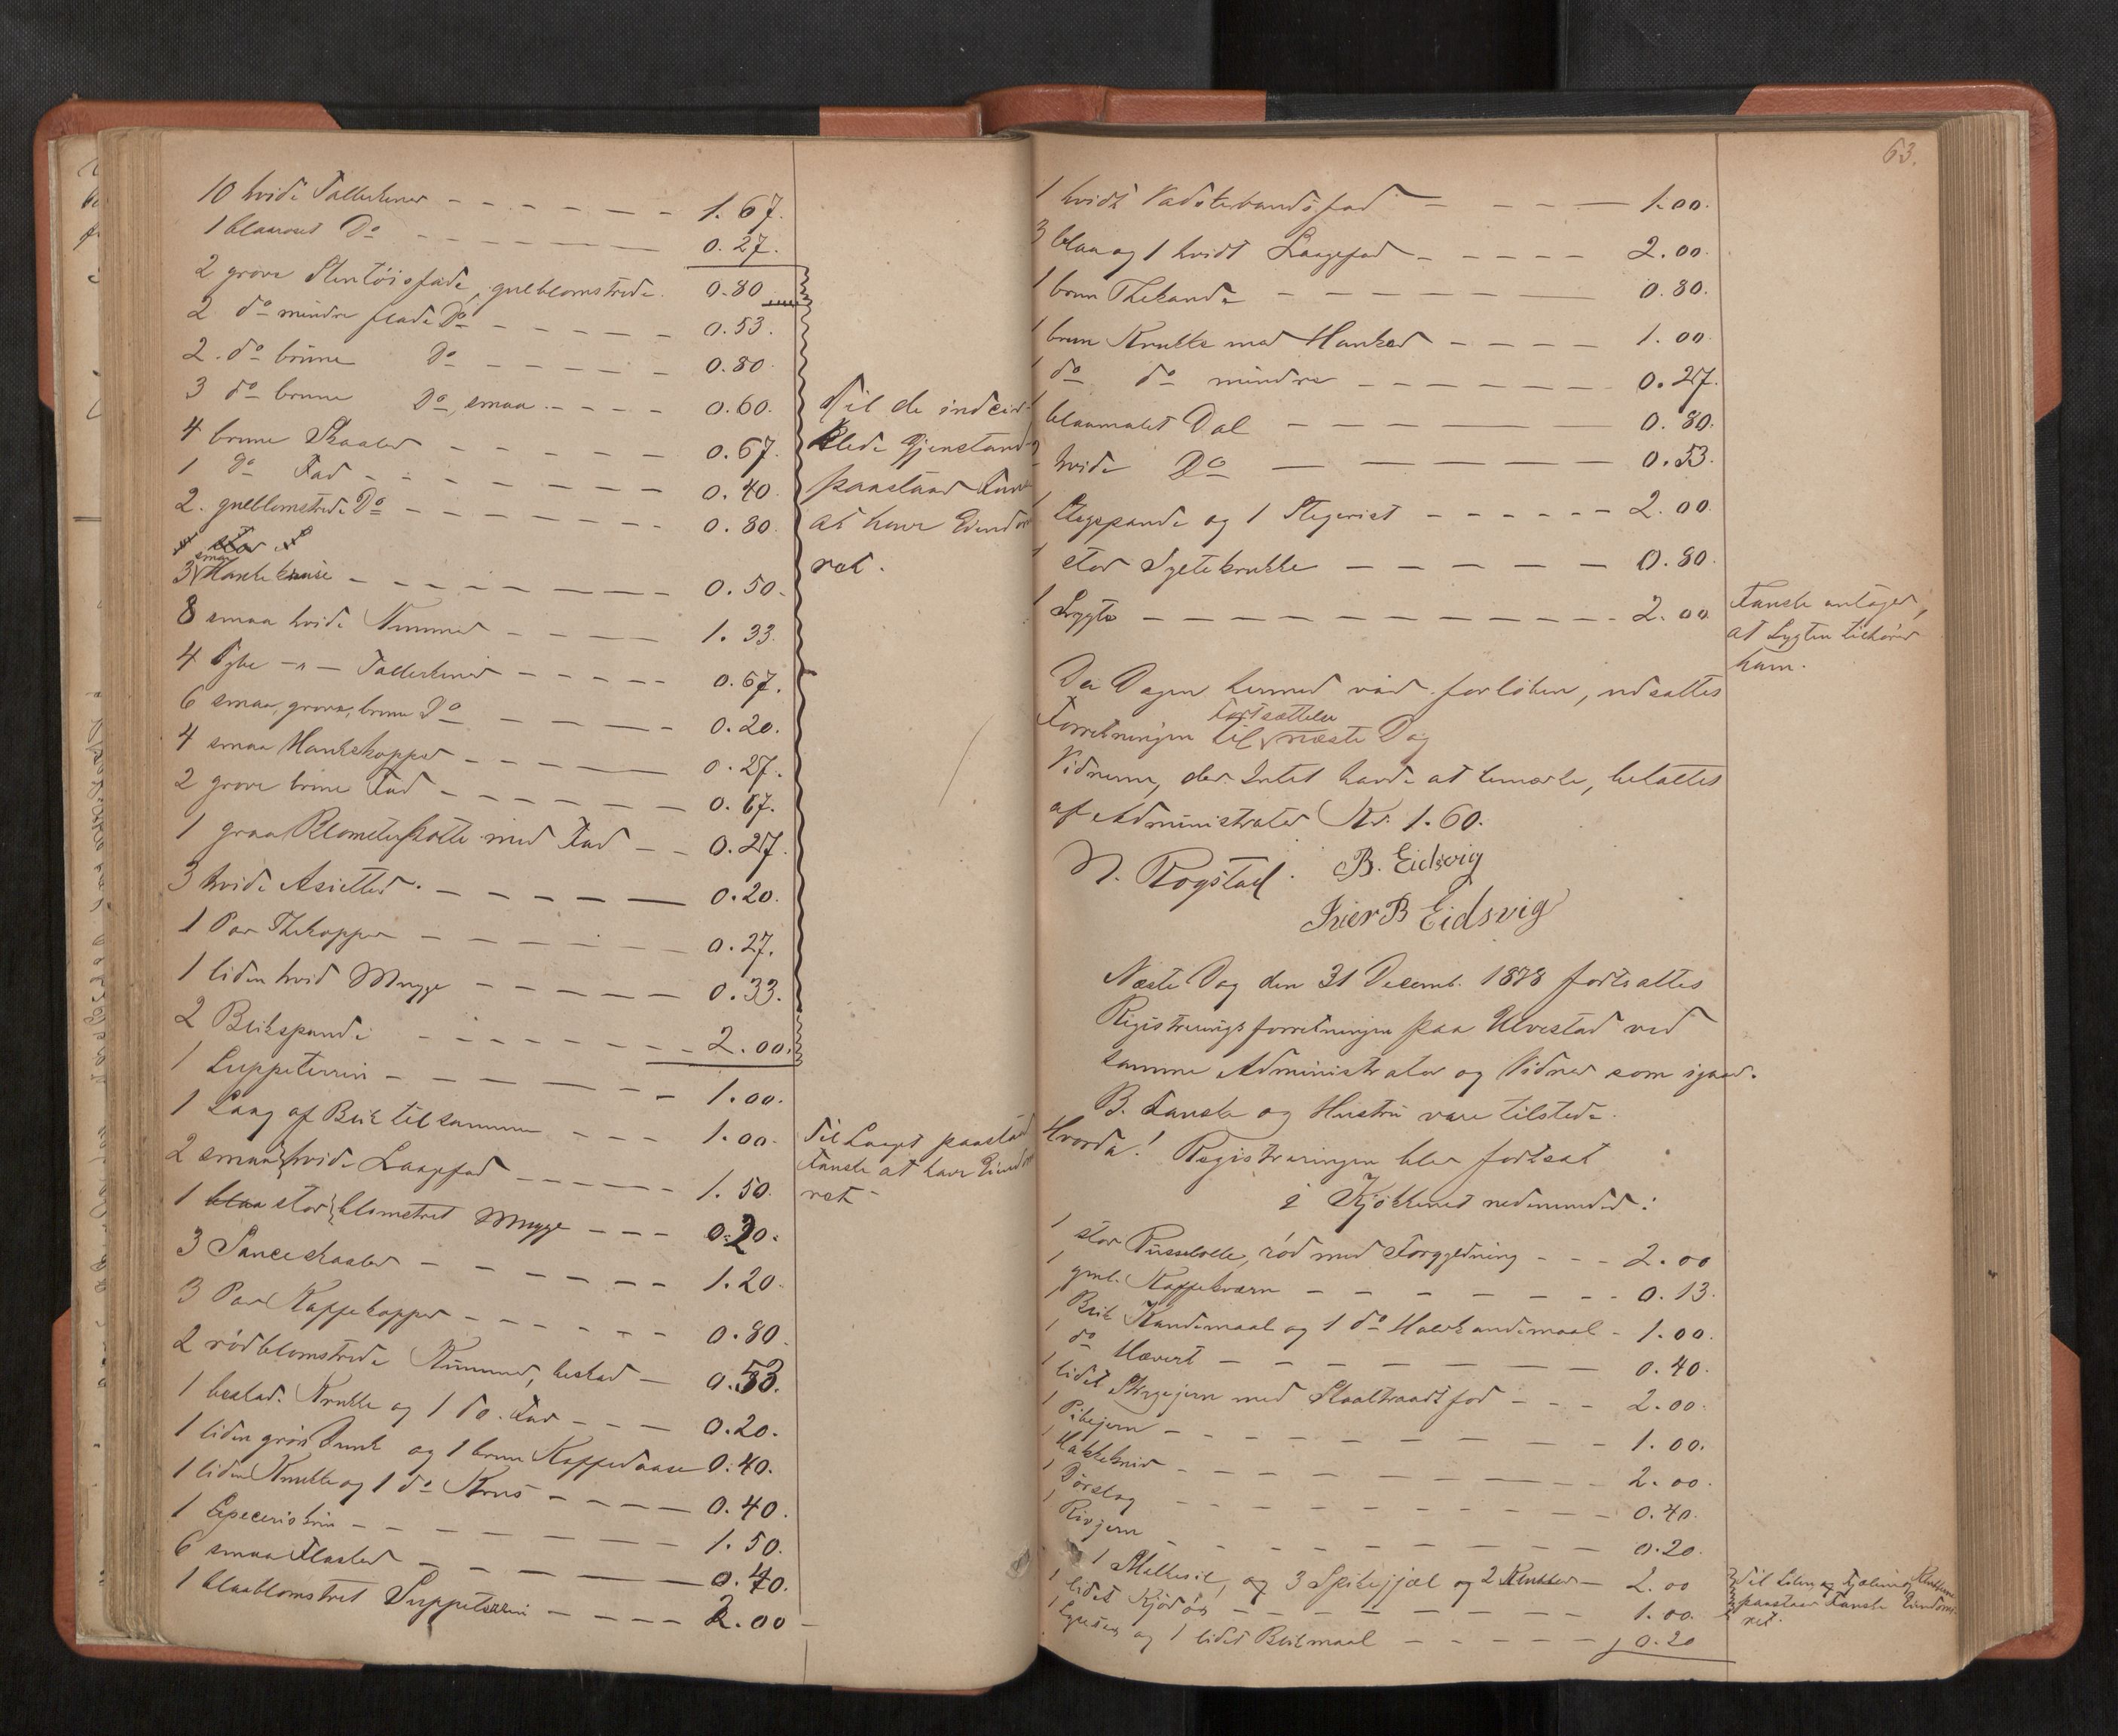 10 hvide Tallerkener - - - - - - 1.67.
1 blaarosed Do - - - - - - 0.27.
2 grove Stentöisfade, gulblomstrede. 0.80
2 do mindre flade Do - - - - - 0.53.
2. do brune Do - - - - - 0.80.
3 do brune Do, smaa - - - - 0.60.
4 brune Skaaler - - - - - - 0.67.
1 Do Fad - - - - - - - 0.40.
2. gulblomstrede Do - - - - - - 0.80.
smaa
3 Hankekruse - - - - - - - 0.50.
8 smaa hvide Kummer - - - - 1.33.
4 dybe -"- Tallerkener - - - - - 0.67.
6 smaa, grove, brune Do - - - - - 0.20.
4 smaa Hankekopper - - - - - 0.27.
2 grove brune Fad - - - - - - 0.67.
1 graa Blomsterpotte med Fad - - 0.27.
3 hvide Asietter - - - - - - 0.20.
1 Par Thekopper - - - - - - 0.27.
1 liden hvid Mugge - - - - - 0.33.
2 Blikspande - - - - - - - 2.00.
1 Suppeterrin - - - - - - - 1.00.
1 Laag af Blik til samme - - - 1.00.
2 smaa hvide Laagefad - - - - - 1.50.
1 blaa stor blomstret Mugge - - - 0.20.
3 Sauceskaaler - - - - - - 1.20.
3 Par Kaffekopper - - - - - - 0.80.
2 rödblomstrede Kummer, beskad - 0.53.
1 beskad. Krukke og 1 do. Fad - - - 0.20.
1 liden grön Dunk og 1 brun Kaffedaase 0.40.
1 liden Krukke og 1 do Krus - - - - 0.40.
1 Speceriskrin - - - - - - - 1.50.
6 smaa Flasker - - - - - - 0.40.
1 blaablomstret Suppeterrin - - - - 2.00
Til de indcir-
klede Gjenstand
paastaar Fanske
at have Eiendoms
ret.
Til Laaget paastaar
Fanske at have Eiendoms
ret
63.
1 hvidt Vadskevandsfad - - - - 1.00.
3 blaa og 1 hvidt Laagefad - - - - - 2.00.
1 brun Thekande - - - - - - - 0.80.
1 brun Krukke med Hanker - - - - 1.00.
1 do do mindre - - - - - - 0.27.
1 blaamalet Dal - - - - - - 0.80.
hvide Do - - - - - - 0.53.
1 Stegepande og 1 Stegerist - - - - - - 2.00.
1 stor Syltekrukke - - - - - 0.80.
1 Lygte - - - - - - - - - - 2.00
Fanske antager,
at Lygten tilhører
ham.
Da Dagen hermed var forløben, udsattes
Fortsættelse
Forretningen til næste Dag
Vidnerne, der Intet havde at bemærke, betaltes
af Administrator Kr. 1.60.
N. Rogstad. B. Eidsvig
Iver B Eidsvig
Næste Dag den 31 Decemb. 1878 fortsattes
Registreringsforretningen paa Ulvestad ved
samme Administrator og Vidner som igaar.
B. Fanske og Hustru vare tilstede.
Hvorda! Registreringen blev fortsat
i Kjökkenet nedenunder:
1 stor Pusseballe, röd med Forgyldning - - - 2.00
1 gml. Kaffekværn - - - - - - - 0.13.
1 Blik Kandemaal og 1 do Halvkandemaal - 1.00.
1 do Hævert - - - - - - - 0.40.
1 lidet Strygejern med Staaltraadsfod - - - 2.00.
1 Pibejern - - - - - - - - 1.00.
1 Hakkekniv - - - - - - - - 2.00.
1 Dörslag - - - - - - - - 0.40.
1 Rivjern - - - - - - - - 0.20.
1 Melkesie, og 3 Spikejjæl og 2 Krukker - 2.00
1 lidet Kjödöx - - - - - - - 1.00.
1 Lysesax og 1 lidet Blikmaal - - - - - 0.20
Til Silen og Fjælene og Krukkerne
paastaar Fanske Eiendoms
ret.